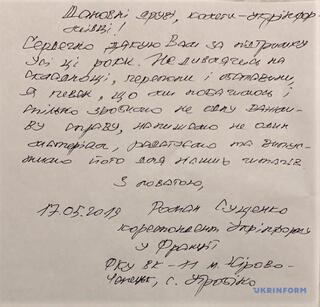 Шановні друзі, колеги-Укрінфор-
мівці!
Сердечно дякую Вам за підтримку
усі ці роки. Не дивлячись на
складнощі, перепони і обставини,
я певен, що ми побачимось і
спільно зробимо не одну важли-
ву справу, напишемо не один
матеріал, та випус-
його для наших читачів
З повагою,
17.05.2019 Роман Сущенко
кореспондент Укрінформу
у Франції
ФКУ ВК-11 м. Кірово-
Чепецьк, с. Утробіно
UKRINFORM